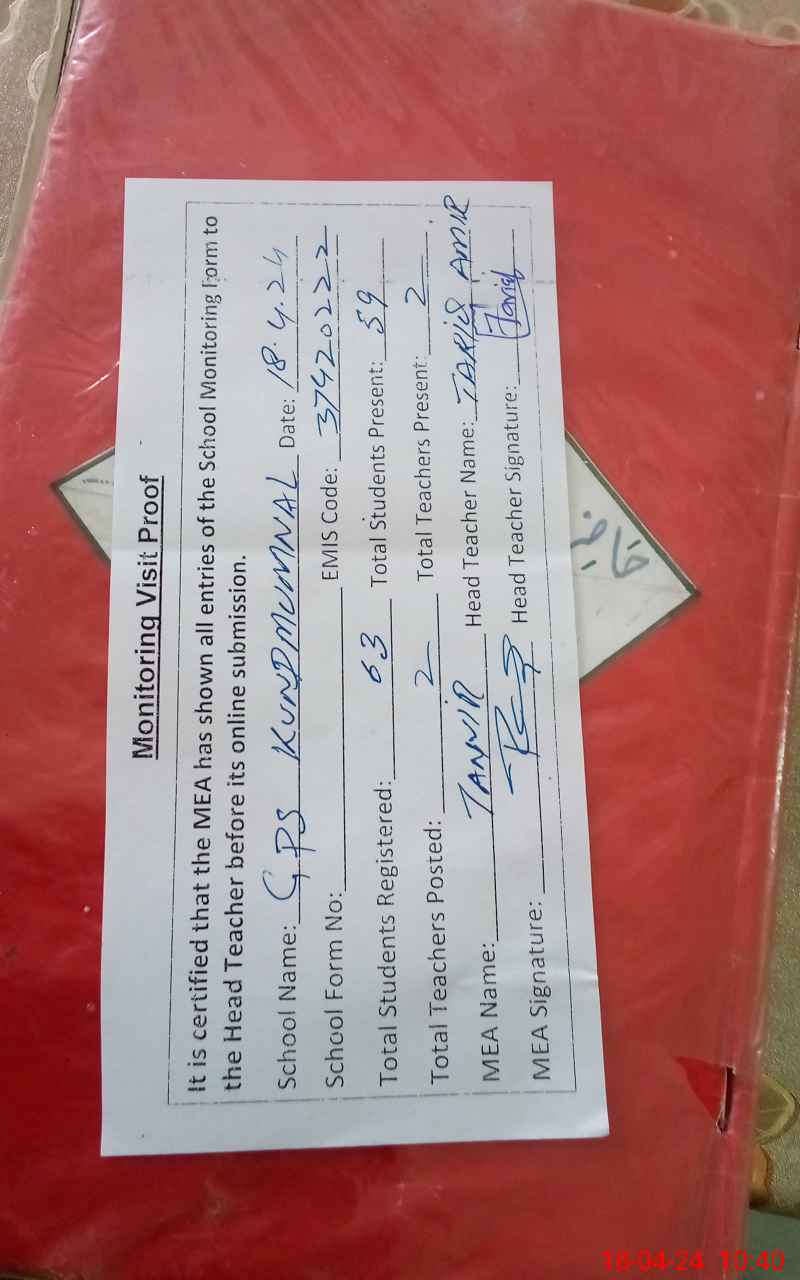 Monitoring Visit Proof
It is certified that the MEA has shown all entries of the School Monitoring Form to
the Head Teacher before its online submission.
School Name: GPS KUNDMUMNAL Date: 18.4.24
School Form No: EMIS Code: 37420222
Total Students Registered: 63 Total Students Present: 59
Total Teachers Posted: 2 Total Teachers Present: 2
MEA Name: TANVIR Head Teacher Name: TARIQ AMIR
MEA Signature: Head Teacher Signature: Tariq
18-04-24 10:40